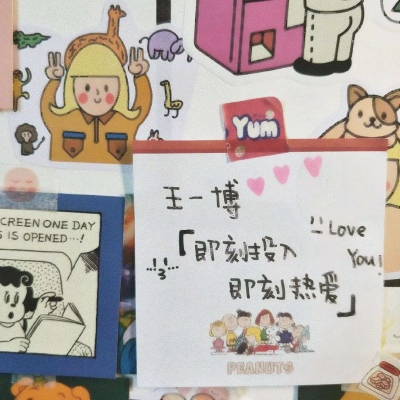 Yum
王一博
「即刻投入
即刻热爱」
Love
You!
PEANUTS
SCREEN ONE DAY
IS OPENED...!